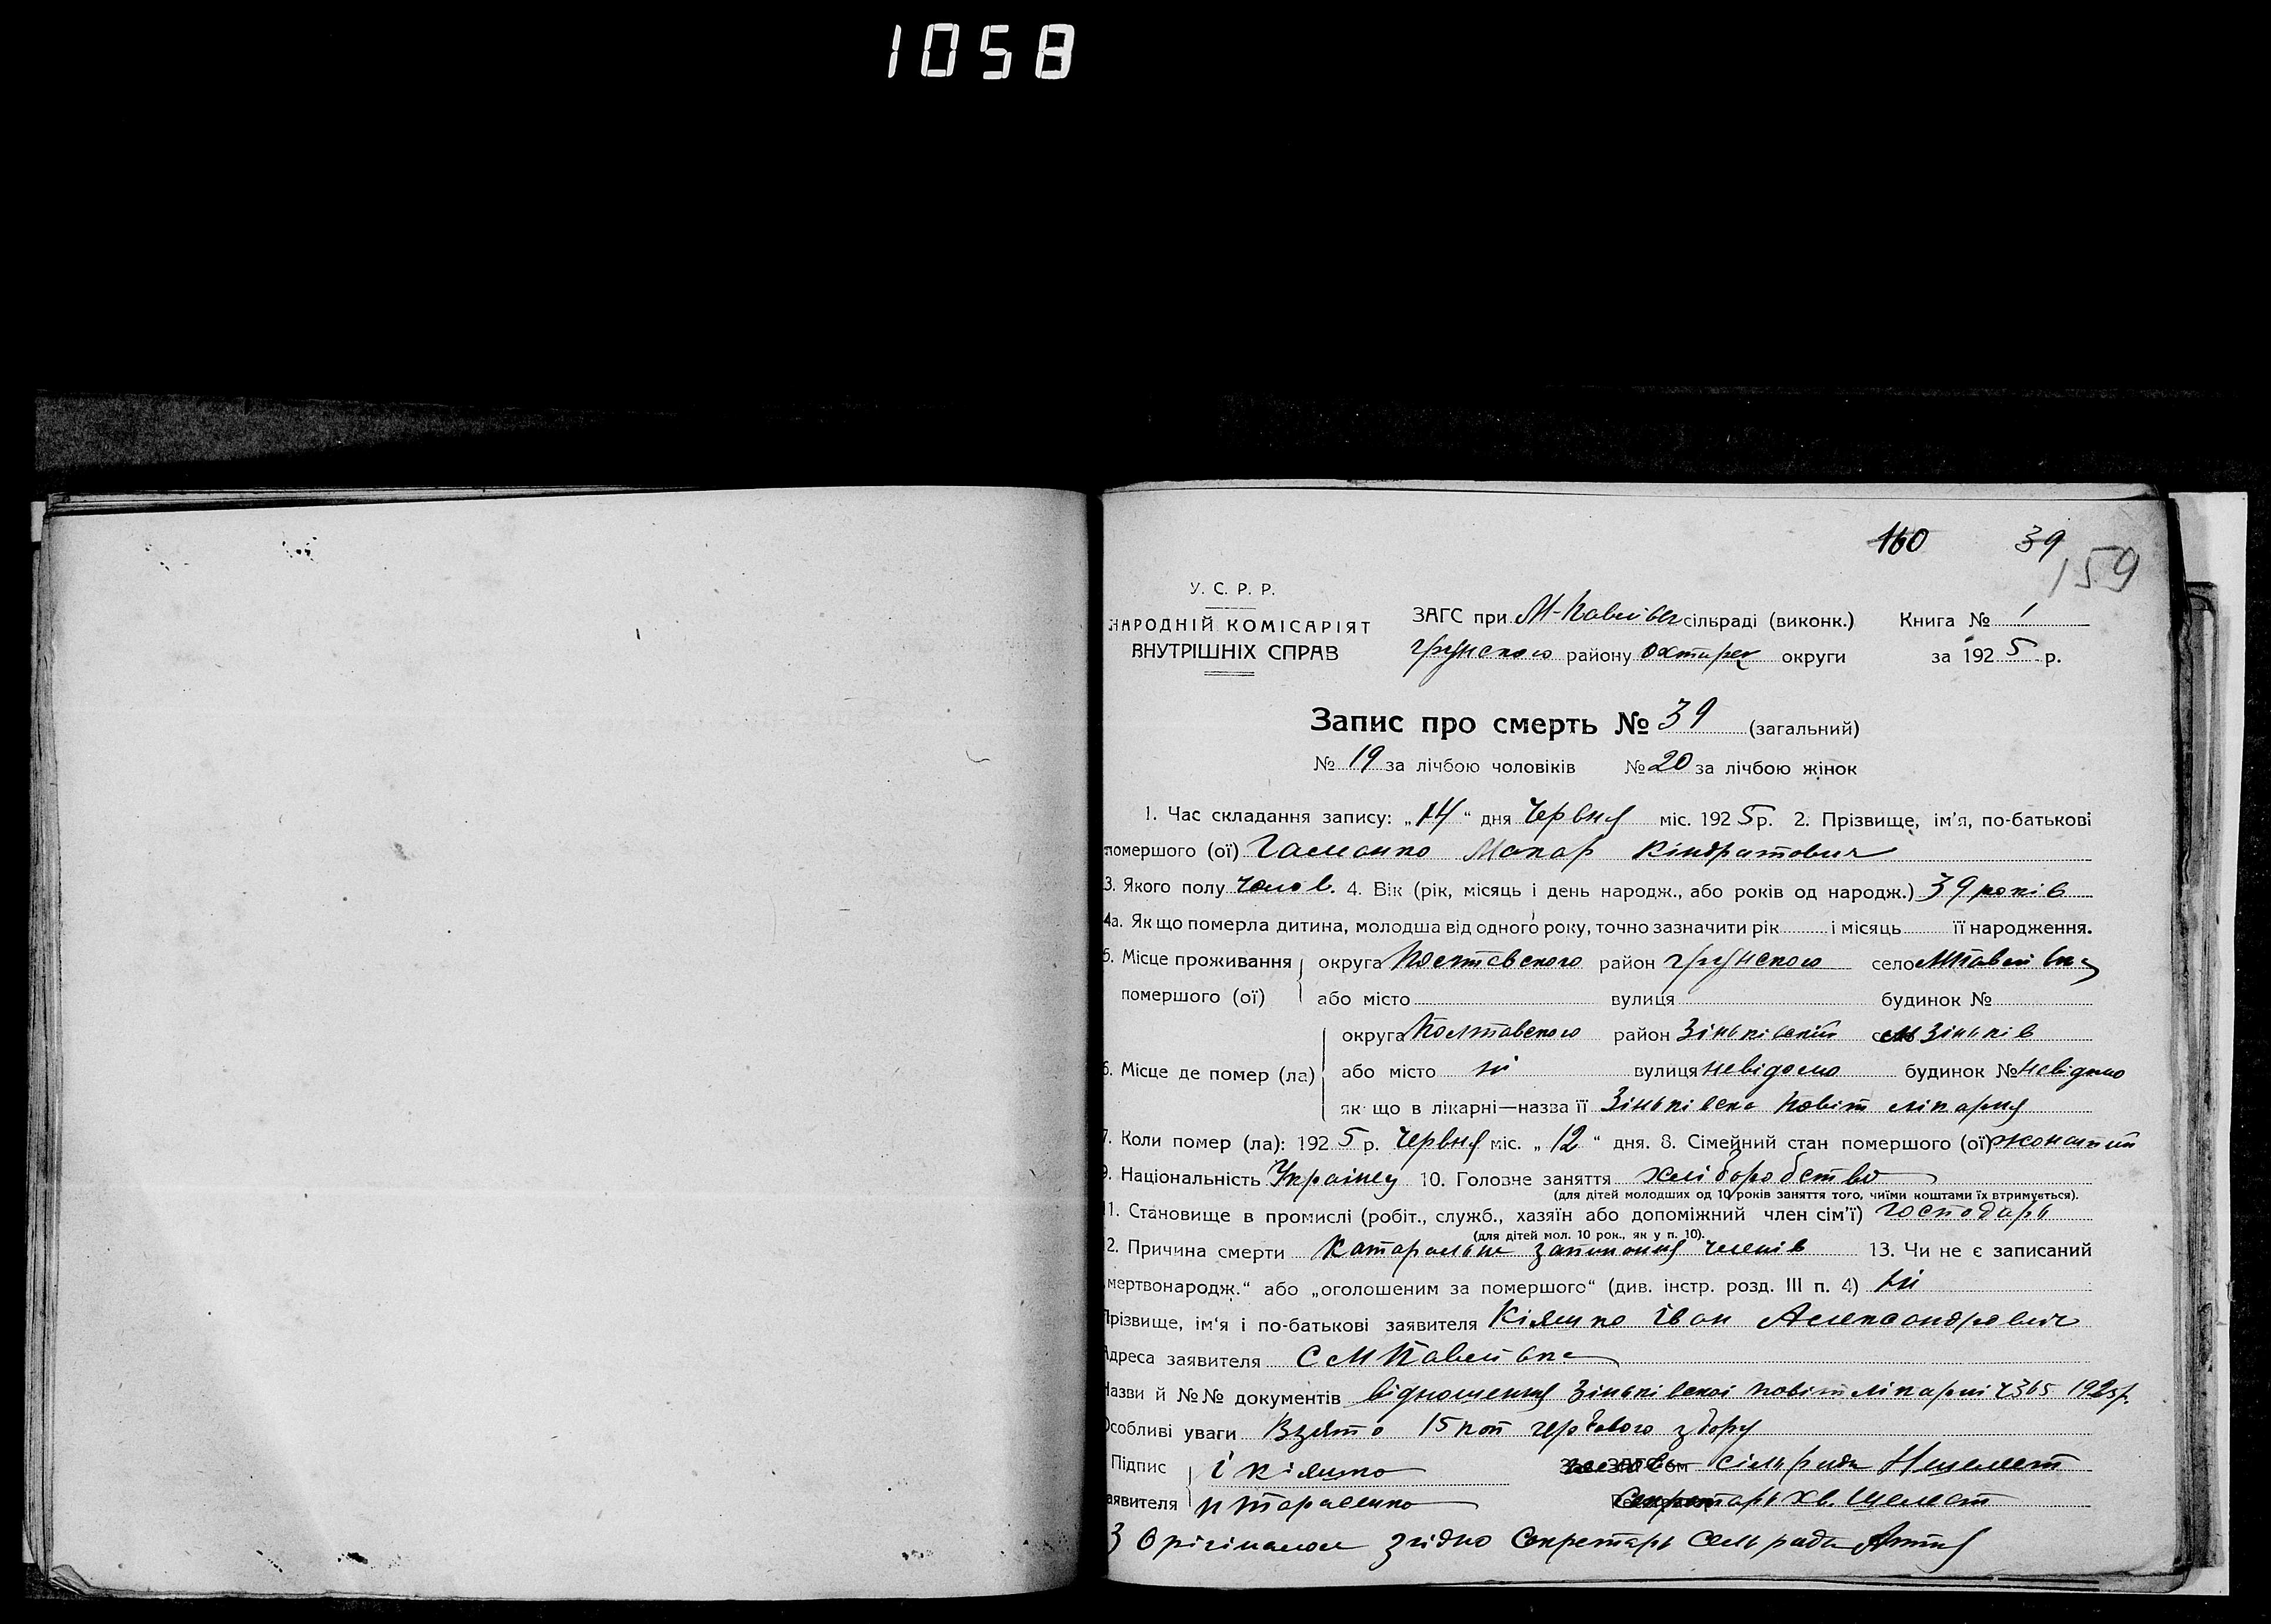 1058
160 39
159
У. С. Р. Р.
НАРОДНІЙ КОМІСАРІЯТ
ВНУТРІШНІХ СПРАВ
ЗАГС при М-Павлівськ сільраді (виконк.) Книга № 1
Грунского району Охтирск округи за 1925 р.
Запис про смерть № 39 (загальний)
№ 19 за лічбою чоловіків № 20 за лічбою жінок
1. Час складання запису: „14“ дня Червня міс. 1925 р. 2. Прізвище, ім’я, по-батькові
помершого (ої) Макар Кіндратович
3. Якого полу чолов. 4. Вік (рік, місяць і день народж., або років од народж.) 39 років
4а. Як що померла дитина, молодша від одного року, точно зазначити рік і місяць її народження.
5. Місце проживання округа Полтавского район Грунского село МПавлівка
помершого (ої) або місто вулиця будинок №
округа Полтавского район Зіньківскій см Зіньків
6. Місце де помер (ла) або місто ні вулиця невідомо будинок № невідомо
як що в лікарні—назва її Зіньківска повіт лікарня
7. Коли помер (ла): 1925 р. Червня міс. „12“ дня. 8. Сімейний стан помершого (ої) жонатий
9. Національність Українец 10. Головне заняття хліборобство
(для дітей молодших од 10 років заняття того, чиїми коштами їх втримується).
11. Становище в промислі (робіт., служб., хазяїн або допоміжний член сім’ї) господарь
(для дітей мол. 10 рок., як у п. 10).
12. Причина смерти Катаральне запалення 13. Чи не є записаний
„мертвонародж.“ або „оголошеним за помершого“ (див. інстр. розд. III п. 4) ні
Прізвище, ім‘я і по-батькові заявителя Кіяшко Іван Александрович
Адреса заявителя С МПавлівка
Назви й №№ документів відношення Зіньківскої повіт лікарні 1925р.
Особливі уваги Взято 15 коп гербового збору
Підпис І Кіяшко сільради Н Шелест
заявителя Тарасенко Секретарь Хв. Шелест
З Орігіналом згідно Секретарь Сельради